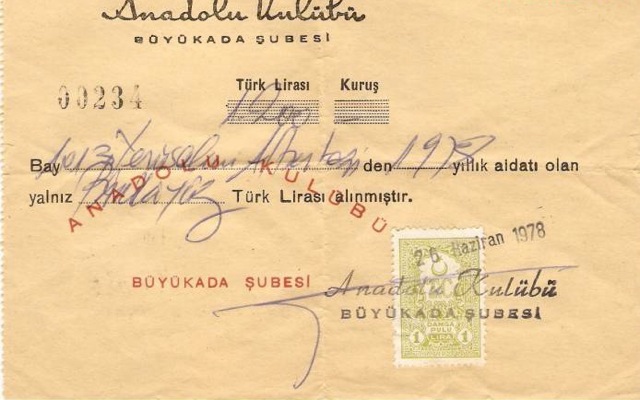 Anadolu Kulübü
BÜYÜKADA ŞUBESİ
Türk Lirası Kuruş
00234
1200
Bay 1013 den 1978 yıllık aidatı olan
yalnız Türk Lirası alınmıştır.
ANADOLU KULÜBÜ
BÜYÜKADA ŞUBESİ
26 Haziran 1978
Anadolu Kulübü
BÜYÜKADA ŞUBESİ
DAMGA
PULU
1 LİRA 1